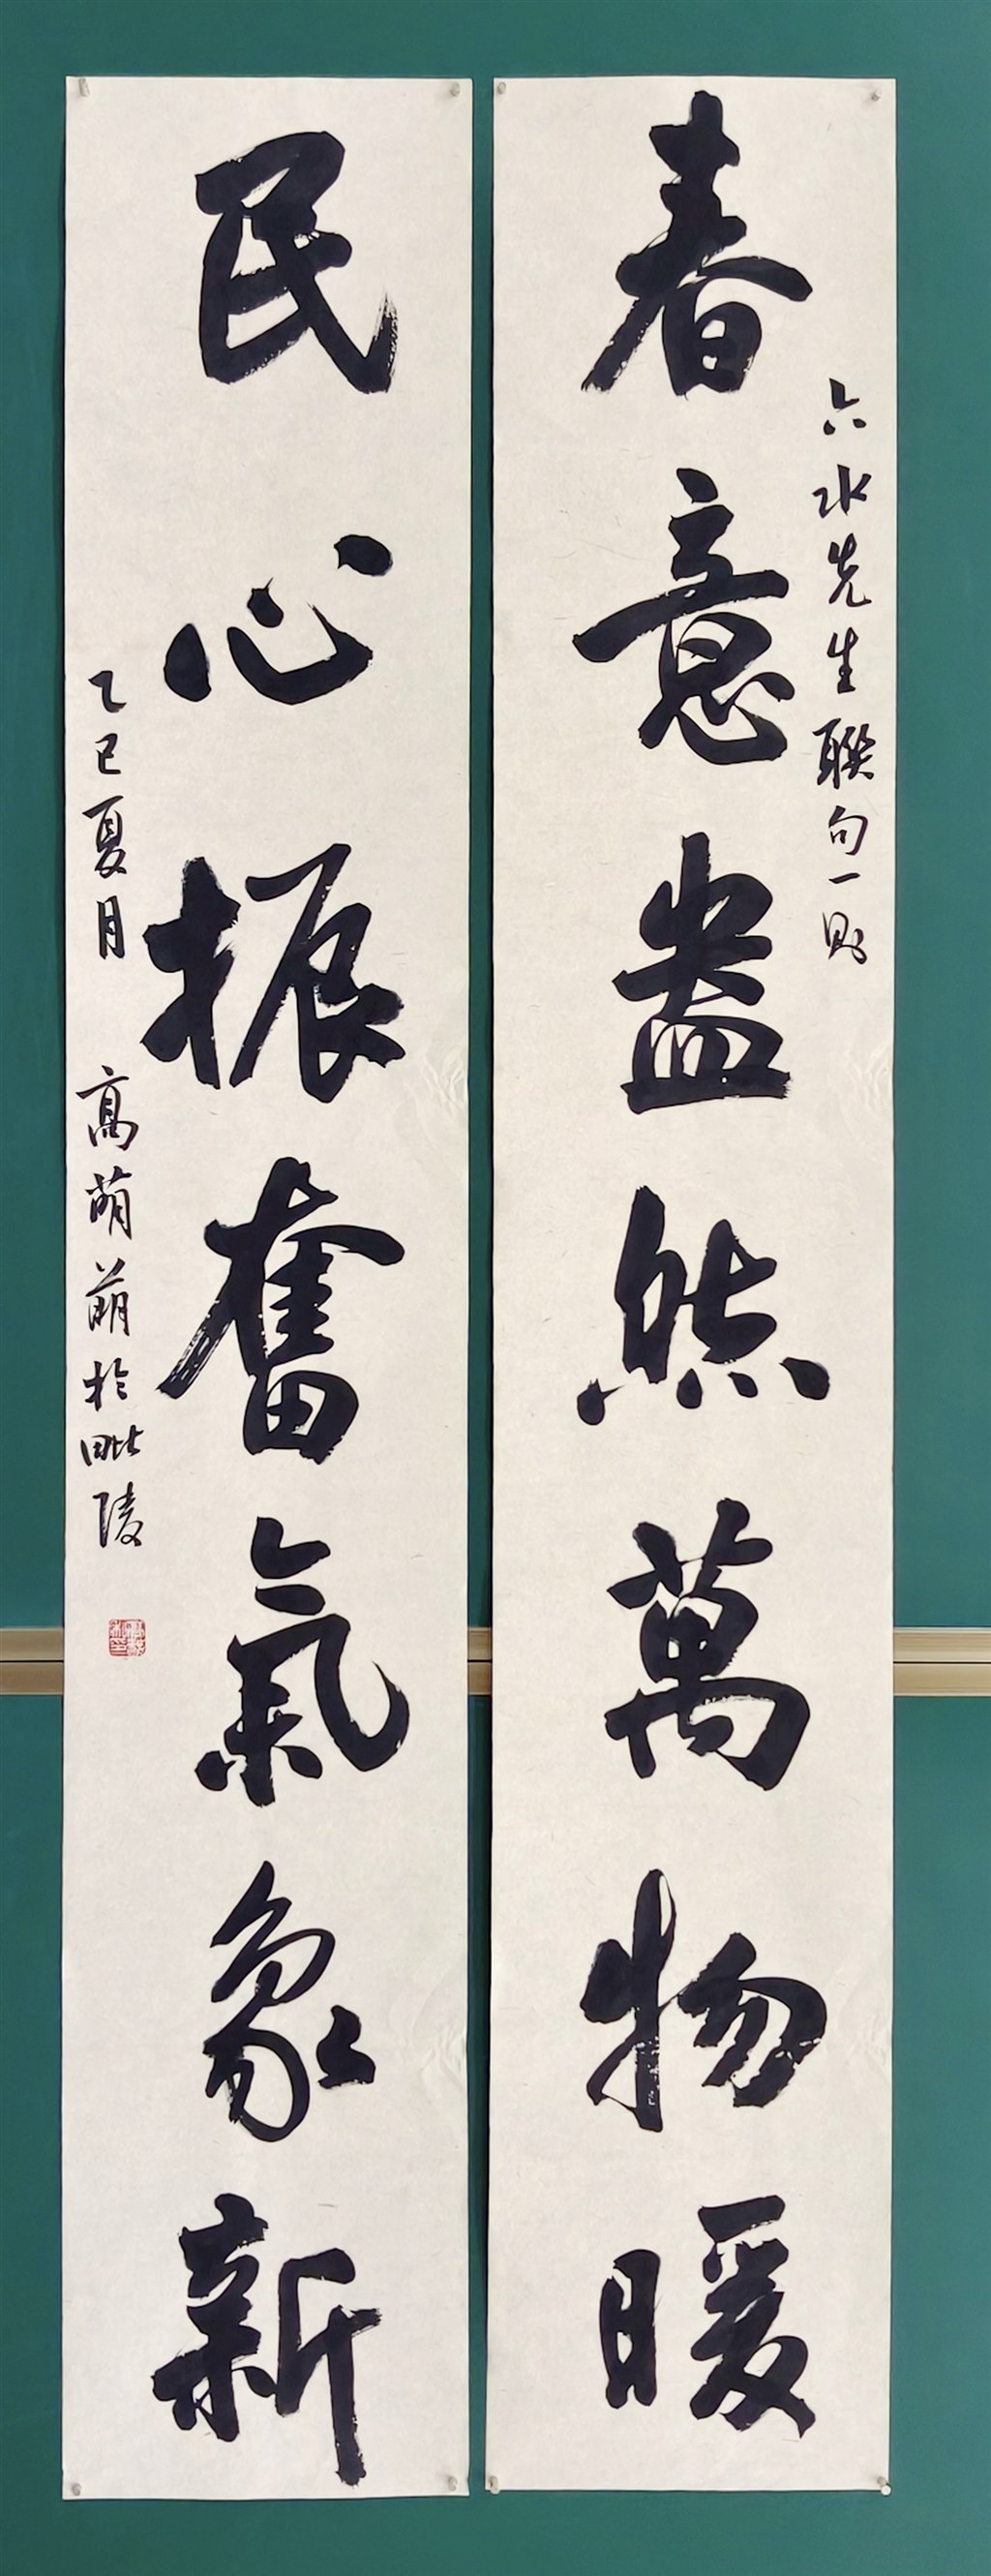 六水先生聯句一則
春意盎然萬物暖
民心振奮氣象新
乙巳夏月 高萌萌於毗陵